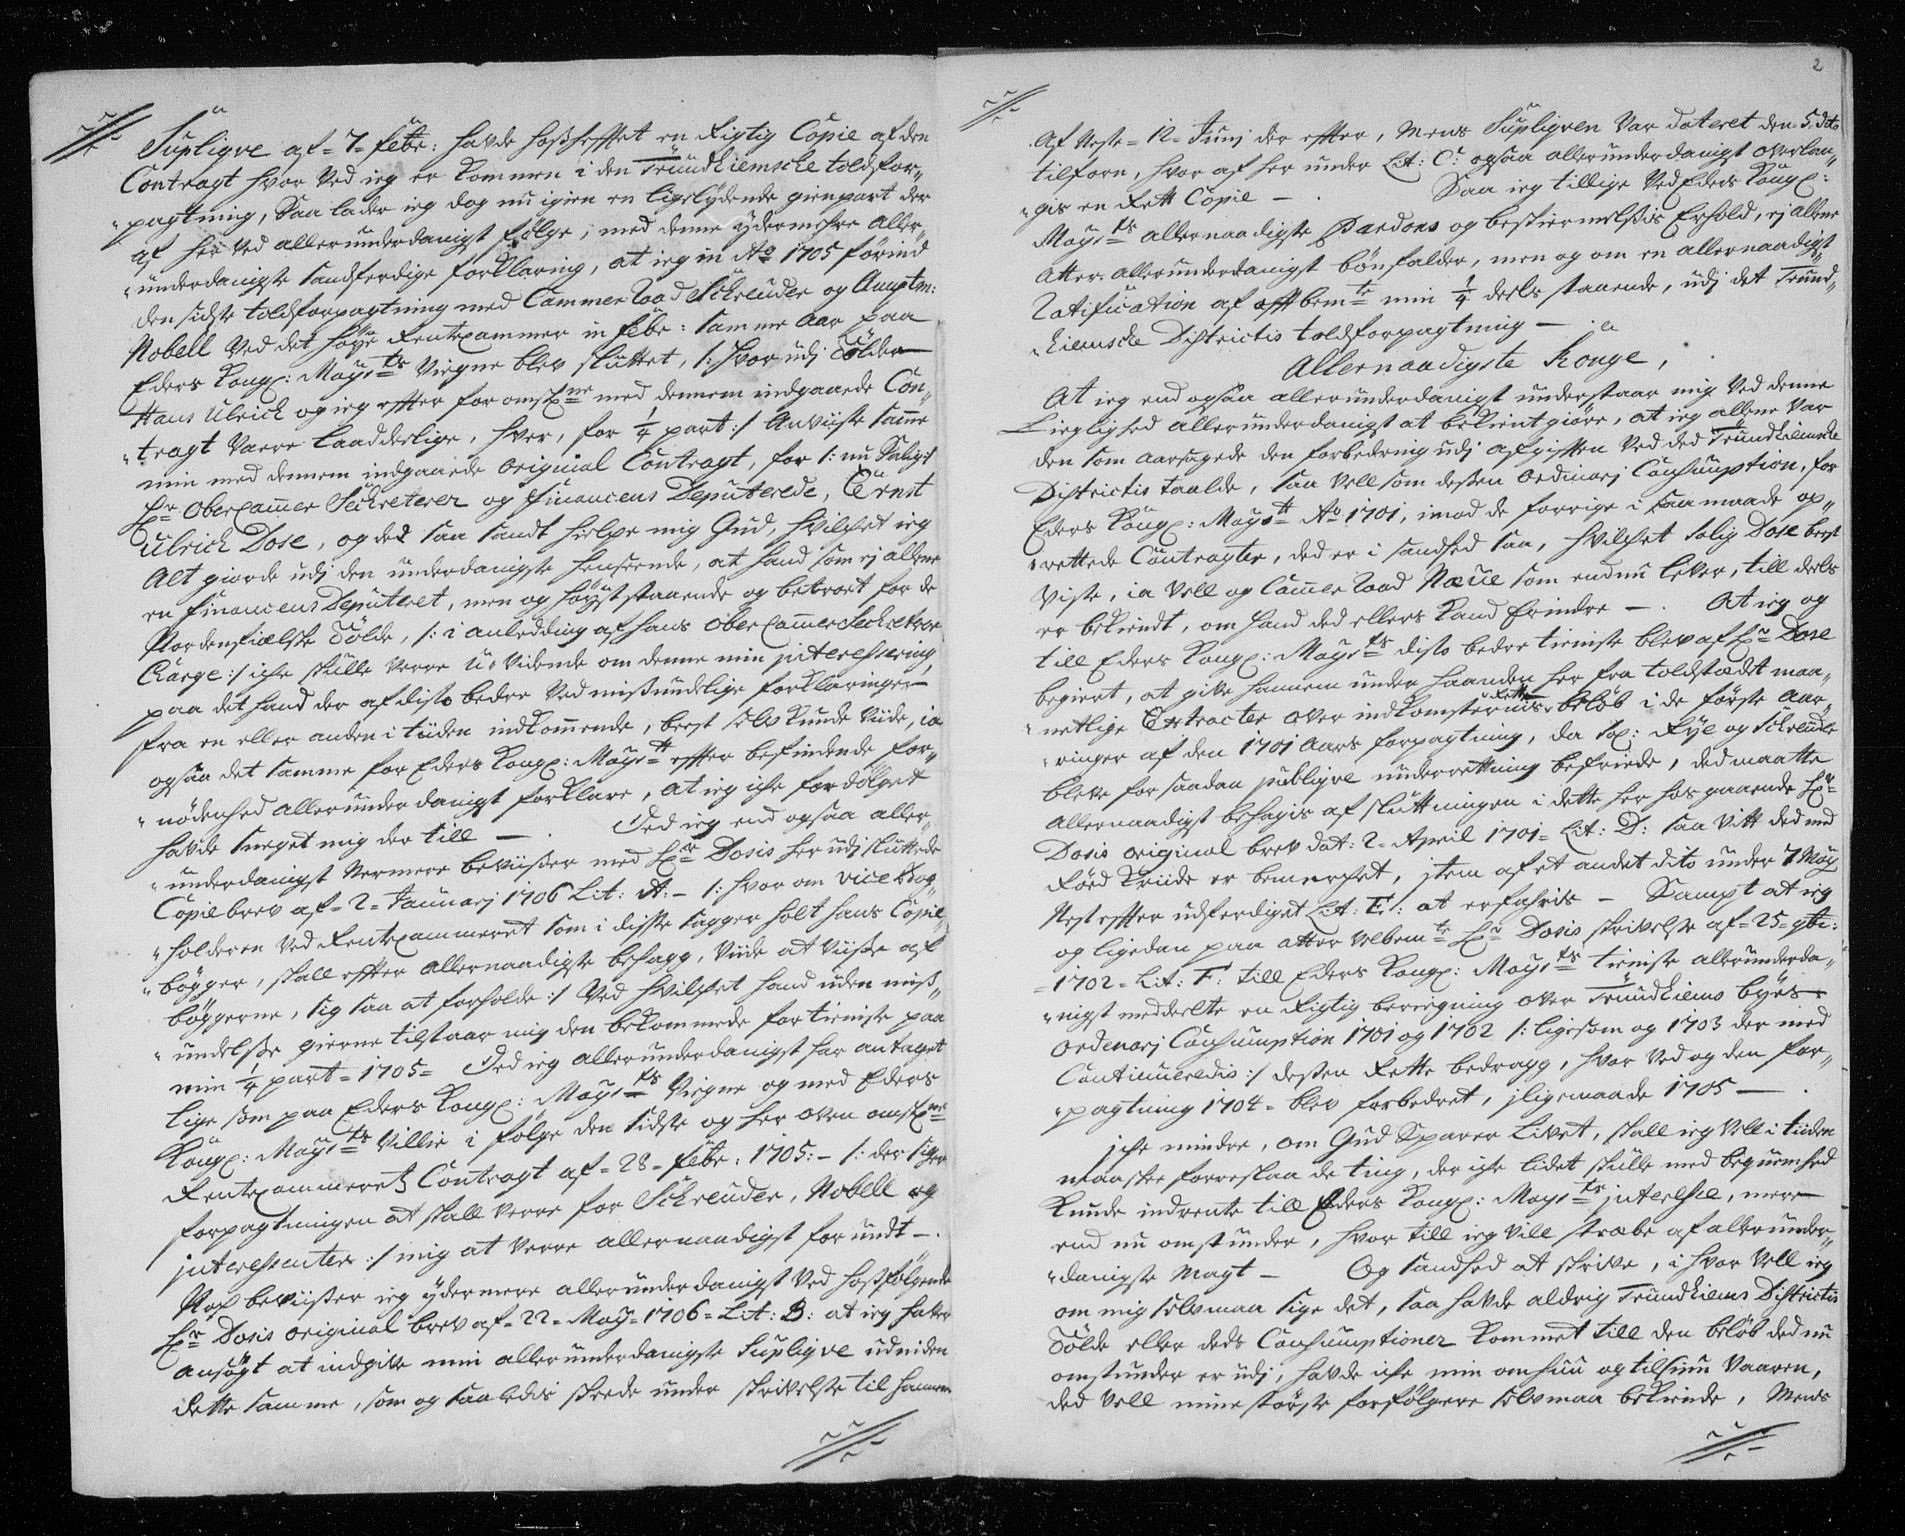 Supligve af = 7 = febr: hafde hoßhefftet en Rigtig Copie af den
Contragt hvor Ved ieg er Kommen i den Trundhiemske toldfor-
"pagtning, Saa lader ieg dog nu igien en ligelydende gienpart der
af her Ved allerunderdanigst følge, med denne ydermehre aller-
"underdanigste sandferdige forklaring, at ieg in Ao 1705 førind
den sidste toldforpagtning med Cammer Raad Schreuder og Amptm:
Nobell Ved det høye Rentecammer in febr: samme Aar paa
Eders Kongl: Mayts Vegne blev sluttet, /: hvor udj Tolder
Hans Ulrich og ieg effter foromskne med dennem indgaaede Con-
"tragt Varre laadderlige, hver, for 1/4 part :/ Anviiste samme
min med dennem indgaaede original Contragt, for /: nu Salig :/
Hr Ober Cammer Secreterer og Financens Deputerede, Ernst
Ulrich Dose, og ded saa sandt hielpe mig Gud, hvilchet ieg
Alt giorde udj den underdanigste henseende, at hand som ej allene
en Financens Deputeret, men og høyststaaende og betroet for de
Nordenfielske Tolde, /: i anledding af hans Ober Cammer Secreterer
Charge :/ iche skulle Verre u-Vidende om denne min interessering
paa det hand der af disto bedre Ved mißundelige forklaringer
fra en eller anden i tiiden indkommende, best selv kunde Viide, ia
ogsaa det samme for Eders Kongl: Mayt effter befindende for-
"nødenhed allerunderdanigst forklare, at ieg iche fordølget
hafde sneget mig der till —. Ded ieg end ogsaa aller-
"underdanigst Nermere beviißer med Hr Dosis her udj sluttede
Copie brev af = 2 = Januarj 1706 Lit: A: – /: hvor om Vice Bog-
"holderen Ved Rentecammeret som i diste sagger holt hans Copie
"bøgger, skall effter allernaadigste befagg, Viide at Viiße af
bøggerne, sig saa at forholde :/ Ved hvilchet hand uden miß-
"undelße gierne tilstaar mig den bekommede fortieniste paa
min 1/4 part = 1705 = Ded ieg allerunderdanigst har antaget
lige som paa Eders Kongl: Mayts Vegne og med Eders
Kongl: Mayts Villie i følge den sidste og her oven omskne
Rentecammerets Contragt af = 28 = febr: 1705: – /: der siger
forpagtningen at skall Verre for Schreuder, Nobell og
interessenter :/ mig at Verre allernaadigst forundt –.
Noch beviißer ieg ydermere allerunderdanigst Ved hoßfølgende
Hr Dosis original brev af = 22 = May = 1706 = Lit: B: at ieg haver
ansøgt at indgive min allerunderdanigste Supligve udi uden
dette samme, som og saaledis skeede under skrivelse til hannem
2
Af Neste = 12 = Junj der effter, Mens Supligven Var dateret den 5 dito
tilforn, hvor af her under Lit: C: ogsaa allerunderdanigst overlan-
"gis en Rett Copie –. Saa ieg tillige Ved Eders Kongl:
Mayts allernaadigste Pardons og beskiermelßis Erhold, ej allene
Atter allerunderdanigst bønfalder, men og om en allernaadigst
Ratification af offtbemte min 1/4 deels staaende, udj det Trund-
"hiemske Districtis toldforpagtning —.
Allernaadigste Konge,
At ieg end ogsaa allerunderdanigst understaar mig Ved denne
Lieglighed allerunderdanigst at bekientgiøre, at ieg allene Var
den som aarsagede den forbedring udj afgifften Ved ded Trundhiemske
Districtis taalde, saa Vell som deßen ordinarj Consumption, for
Eders Kongl: Mayt Ao 1701, imod de forrige i saa maade op-
"rettede Contragter, ded er i sandhed saa, hvilchet salig Dose best
Viste, ia Vell og Cammer Raad Neue som endnu lever, till deels
er bekiendt, om hand ded ellers Kand Erindre —. At ieg og
till Eders Kongl: Mayts disto bedre tieniste blev af Hr Dose
begiert, at give hannem under haanden her fra toldstædt maa-
"netlige Extracter over indkomsternis Rette beløb i de første Aar-
"ringer af den 1701 Aars forpagtning, da sal: Rye og Schreuder
bleve for saadan publigve underrettning befriede, ded maatte
allernaadigst behagis af sluttningen i dette her hos gaaende Hr
Dosis original brev dat: 2 = April 1701 = Lit: D: saa Vitt ded med
Rød Kriide er bemerchet, jtem af et andet dito under 7 May
Nest effter udferdiget Lit: E: at erfahris – Sampt at ieg
og ligedan paa atter Velbemte Hr Dosis skrivelse af = 25 = 9br:
= 1702 = Lit: F: till Eders Kongl: Mayts tieniste allerunderda-
"nigst meddeelte en Rigtig beregning over Trundhiems byes
ordenarj Consumption 1701 og 1702 /: ligesom og 1703 der med
Continueredis :/ deßen Rette bedragg, hvor Ved og den for-
"pagtning 1704 = blev forbedret, jligemaade 1705 —.
iche mindre, om Gud Sparer Livet, skall ieg Vell i tiiden
maaske forreslaa de ting, der iche lidet skulle med beqvemhed
Kunde indrente till Eders Kongl: Mayts interesse, mere
end nu omstunder, hvor till ieg Vill stræbe af allerunder-
"danigste Magt – Og sandhed at skrive, i hvor Vell ieg
om mig selv maa sige det, saa hafde aldrig Trundhiems Districtis
Tolde eller deds Consumptioner Kommet till den beløb ded nu
omstunder er udj, hafde iche min omhuu og tilsiun Vaaren,
ded Vell mine største forfølgere selv maa bekiende, Mens